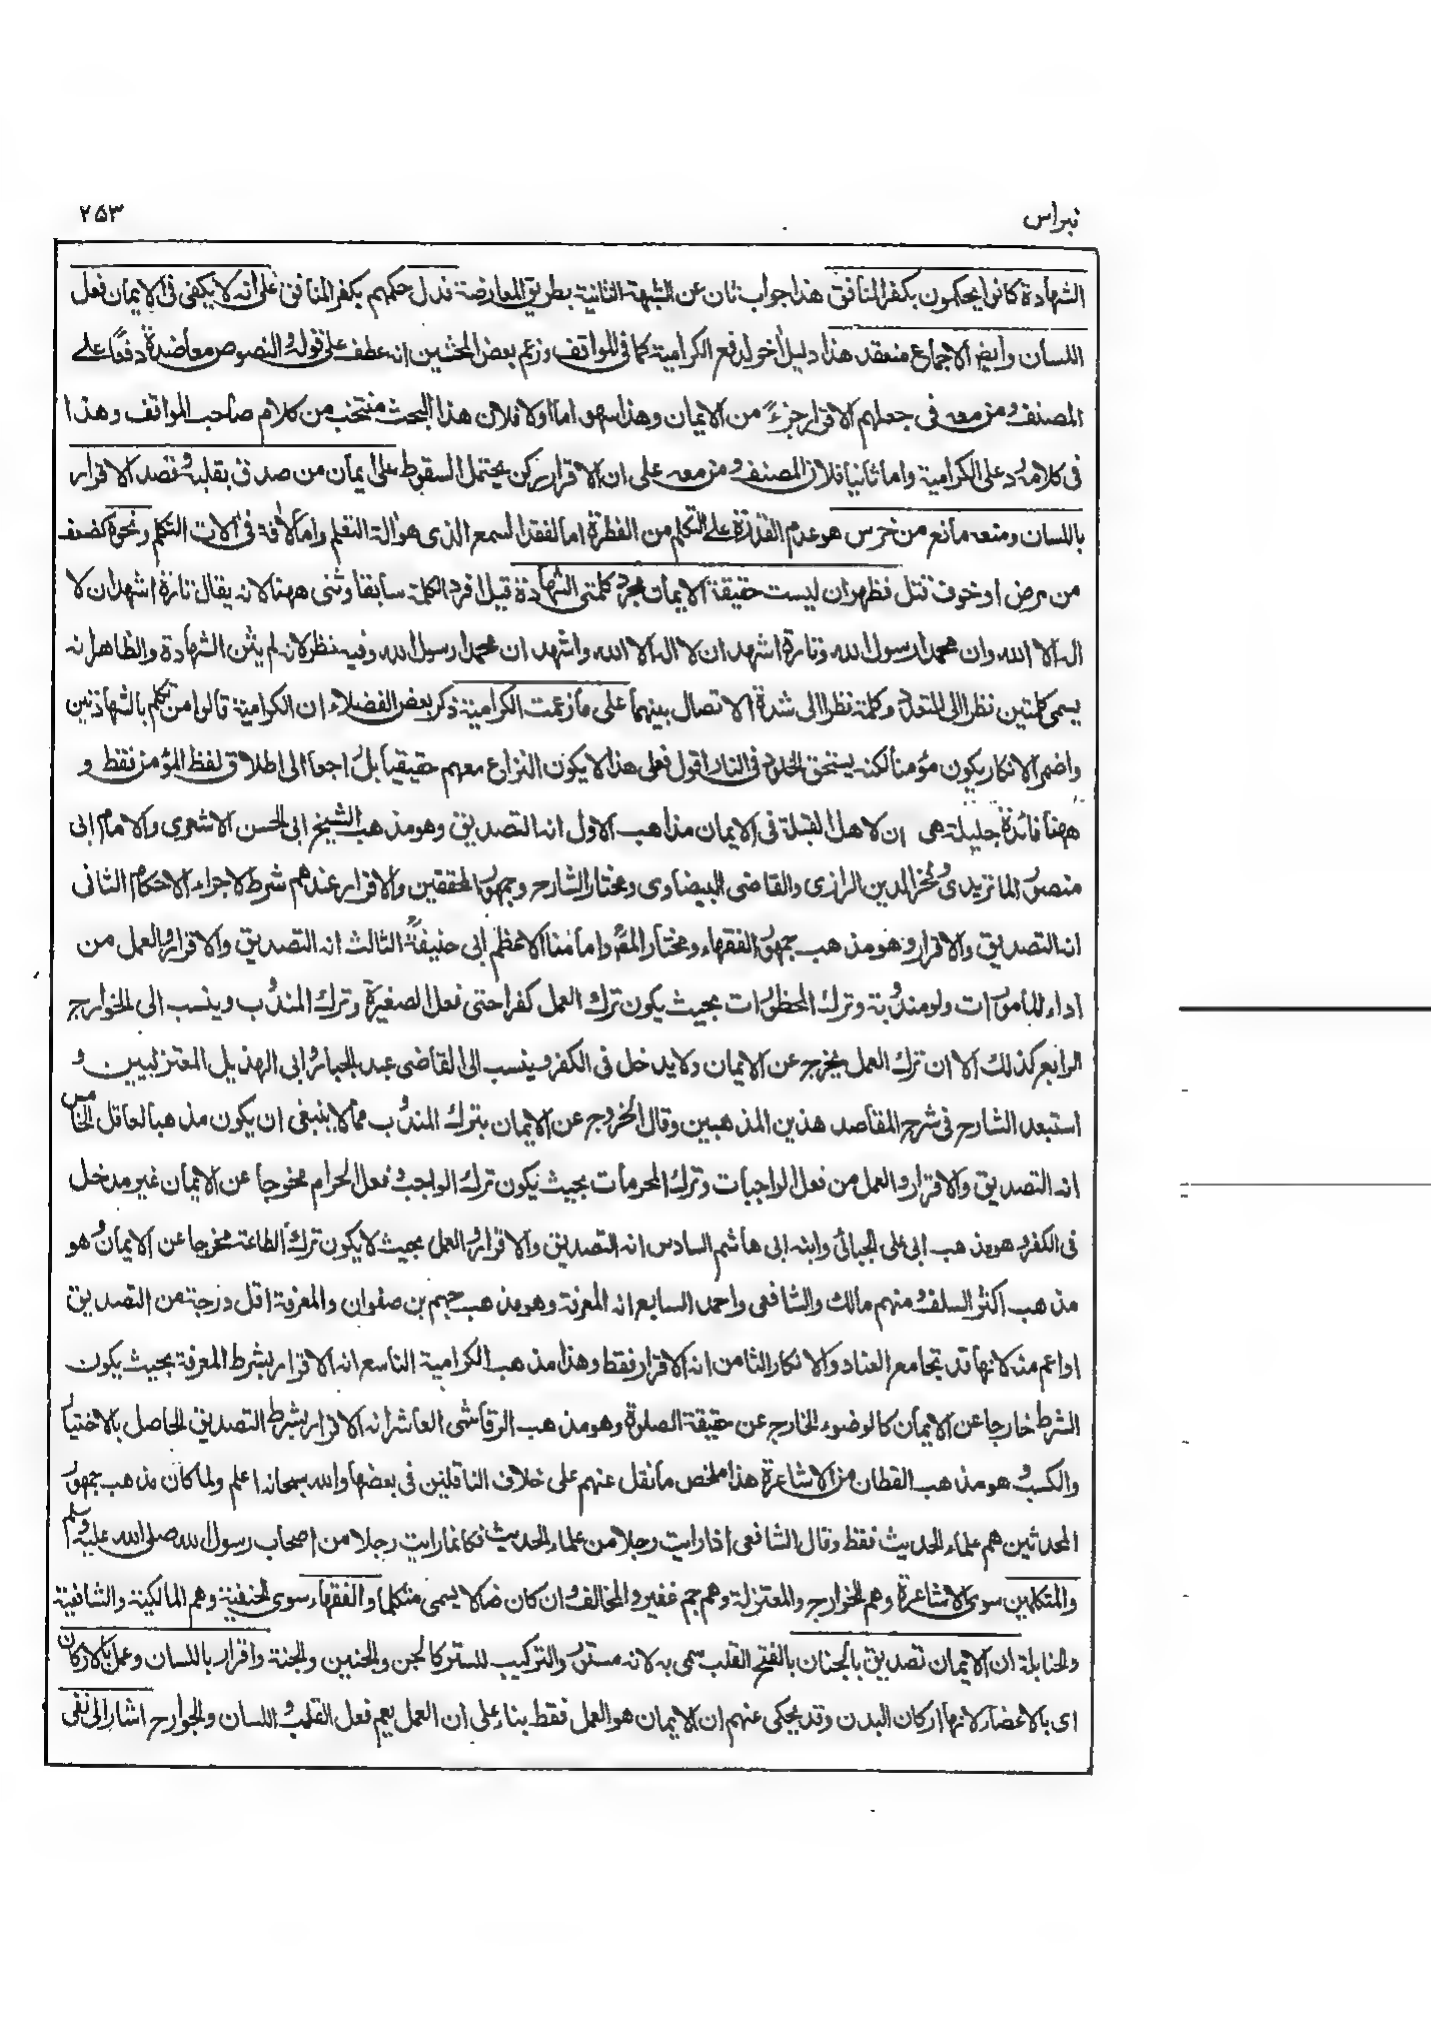 نبراس
۲۵۳
الشهادة كانوا يحكمون بكفر المنافق هذا جواب ثان عن الشبهة الثانية بطريق المعارضة فدل حكمهم بكفر المنافق على انه لا يكفى فى الايمان فعل
اللسان وايضا الاجماع منعقد هذا دليل اخر لدفع الكرامية كما فى المواقف وزعم بعض المحشين انه عطف على قوله والنصوص معاضدة دفعا على
المصنف ومن معه فى جعلهم الاقرار جزءً من الايمان وهذا سهو اما اولا فلان هذا البحث منتخب من كلام صاحب المواقف وهذا
فى كلامه رد على الكرامية واما ثانيا فلان المصنف ومن معه على ان الاقرار ركن يحتمل السقوط على ايمان من صدق بقلبه وقصد الاقرار
باللسان ومنعه مانع من خرس هو عدم القدرة على التكلم من الفطرة اما لفقد السمع الذى هو الة التعلم واما لآفة فى الات التكلم ونحوه كضعف
من مرض او خوف قتل فظهر ان ليست حقيقة الايمان مجرد كلمتى الشهادة قيل افرد الكلمة سابقا وثنى ههنا لانه يقال تارة اشهد ان لا
اله الا الله وان محمدا رسول الله وتارة اشهد ان لا اله الا الله واشهد ان محمدا رسول الله وفيه نظر لانه لم يثن الشهادة والظاهر انه
يسمى كلمتين نظرا الى التعدد وكلمة نظرا الى شدة الاتصال بينهما على ما زعمت الكرامية ذكر بعض الفضلاء ان الكرامية قالوا من تكلم بالشهادتين
واضمر الانكار يكون مؤمنا لكنه يستحق الخلود فى النار اقول فعلى هذا لا يكون النزاع معهم حقيقيا بل راجعا الى اطلاق لفظ المؤمن فقط و
ههنا فائدة جليلة هى ان لاهل القبلة فى الايمان مذاهب الاول انه التصديق وهو مذهب الشيخ ابى الحسن الاشعرى والامام ابى
منصور الماتريدى وفخر الدين الرازى والقاضى البيضاوى ومختار الشارح وجمهور المحققين والاقرار عندهم شرط لاجراء الاحكام الثانى
انه التصديق والاقرار وهو مذهب جمهور الفقهاء ومختار المصؒ وامامنا الاعظم ابى حنيفةؒ الثالث انه التصديق والاقرار والعمل من
اداء المأمورات ولو مندوبة وترك المحظورات بحيث يكون ترك العمل كفرا حتى فعل الصغيرة وترك المندوب وينسب الى الخوارج
الرابع كذلك الا ان ترك العمل يخرج عن الايمان ولا يدخل فى الكفر وينسب الى القاضى عبد الجبار وابى الهذيل المعتزليين و
استبعد الشارح فى شرح المقاصد هذين المذهبين وقال الخروج عن الايمان بترك المندوب مما لا ينبغى ان يكون مذهبا لعاقل الخامس
انه التصديق والاقرار والعمل من فعل الواجبات وترك المحرمات بحيث يكون ترك الواجب وفعل الحرام مخرجا عن الايمان غير مدخل
فى الكفر وهو مذهب ابى على الجبائى وابنه ابى هاشم السادس انه التصديق والاقرار والعمل بحيث لا يكون ترك الطاعة مخرجا عن الايمان وهو
مذهب اكثر السلف ومنهم مالك والشافعى واحمد السابع انه المعرفة وهو مذهب جهم بن صفوان والمعرفة اقل درجة من التصديق
او اعم منه لانها قد تجامع العناد والانكار الثامن انه الاقرار فقط وهذا مذهب الكرامية التاسع انه الاقرار بشرط المعرفة بحيث يكون
الشرط خارجا عن الايمان كالوضوء الخارج عن حقيقة الصلوة وهو مذهب الرقاشى العاشر انه الاقرار بشرط التصديق الحاصل بالاختيار
والكسب وهو مذهب القطان من الاشاعرة هذا ملخص ما نقل عنهم على خلاف الناقلين فى بعضها والله سبحانه اعلم ولما كان مذهب جمهور
المحدثين هم علماء الحديث فقط وقال الشافعى اذا رايت رجلا من علماء الحديث فكانما رايت رجلا من اصحاب رسول الله صلى الله عليه وسلم
والمتكلمين سوى الاشاعرة وهم الخوارج والمعتزلة وهم جم غفير والمخالف وان كان ضالا يسمى متكلما والفقهاء سوى الحنفية وهم المالكية والشافعية
والحنابلة ان الايمان تصديق بالجنان بالفتح القلب سمى به لانه مستور والتركيب للستر كالجن والجنين والجنة واقرار باللسان وعمل بالاركان
اى بالاعضاء لانها اركان البدن وقد يحكى عنهم ان الايمان هو العمل فقط بناء على ان العمل يعم فعل القلب واللسان والجوارح اشار الى نفى